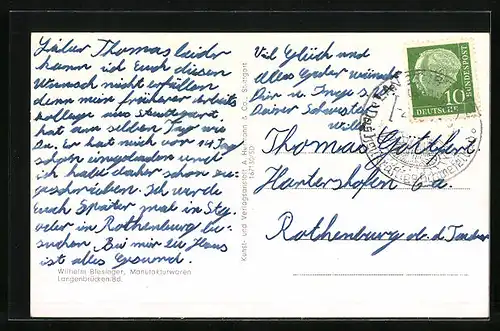 Lieber Thomas leider
kann ich Euch diesen
Wunsch nicht erfüllen
denn mein früherer Arbeits
kollege aus Stuttgart
hat am selben Tag wie
Du. Er hat mich vor 14 Tag
schon eingeladen und
ich habe daher schon zu-
geschrieben. Ich werde
Euch Später mal in Steg.
oder in Rothenburg be-
suchen. Bei mir zu Haus
ist alles Gesund.
Wilhelm Blesieger, Manufakturwaren
Langenbrücken/Bd.
Kunst- und Verlagsanstalt A. Hermann & Co., Stuttgart
Viel Glück und
alles Guter wünscht
Dir u.
Deiner Schwester
Willi
10
DEUTSCHE BUNDESPOST
Thomas Göttfert
Hartershofen 6 a.
Rothenburg ob. d. Tauber